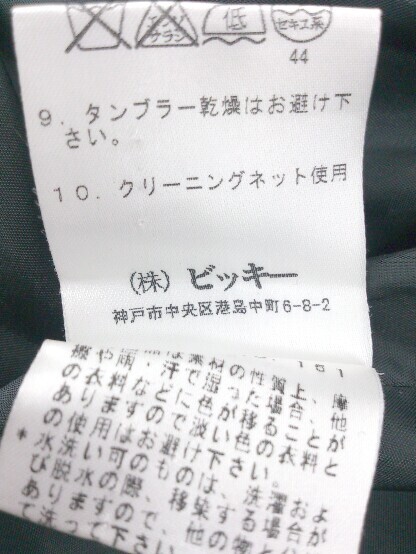 低
セキユ系
44
9．タンブラー乾燥はお避け下
さい。
10．クリーニングネット使用
（株）ビッキー
神戸市中央区港島中町6-8-2
161
素材の性質上、摩
擦や雨、汗で湿った場合、他
の衣料などに色が移ることが
ありますので淡い色の衣料と
の使用はお避け下さい。
＊水洗い可のものは、洗濯およ
び脱水の際、移染する場合が
ありますので、他の物と
て洗って下さい